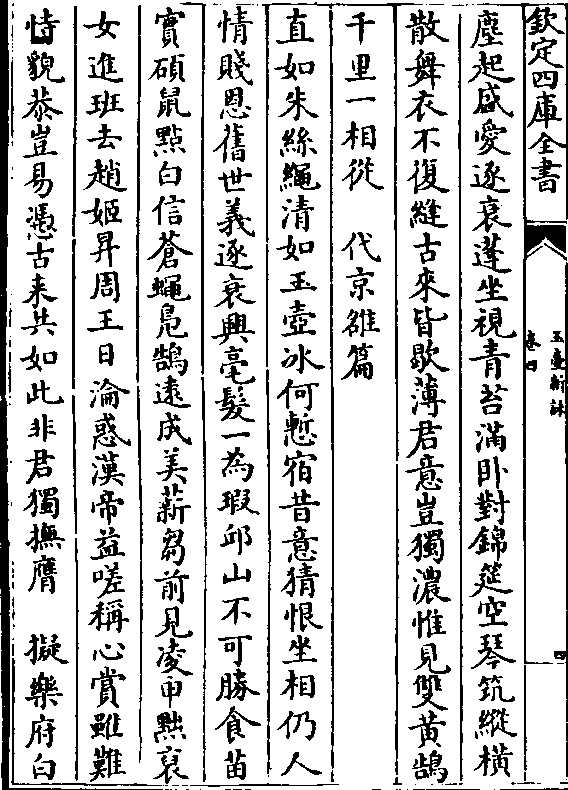 欽定四庫全書
玉臺新詠
卷四
四
塵起盛愛逐衰蓬坐視青苔滿卧對錦筵空琴筑縱横
散舞衣不復縫古來皆歇薄君意豈獨濃惟見雙黃鵠
千里一相從　代京雒篇
直如朱絲繩清如玉壺冰何慙宿昔意猜恨坐相仍人
情賤恩舊世義逐衰興毫髮一為瑕邱山不可勝食苗
實碩鼠點白信蒼蠅鳧鵠遠成美薪芻前見凌申黜襃
女進班去趙姬昇周王日淪惑漢帝益嗟稱心賞雖難
恃貌恭豈易憑古来共如此非君獨撫膺　擬樂府白